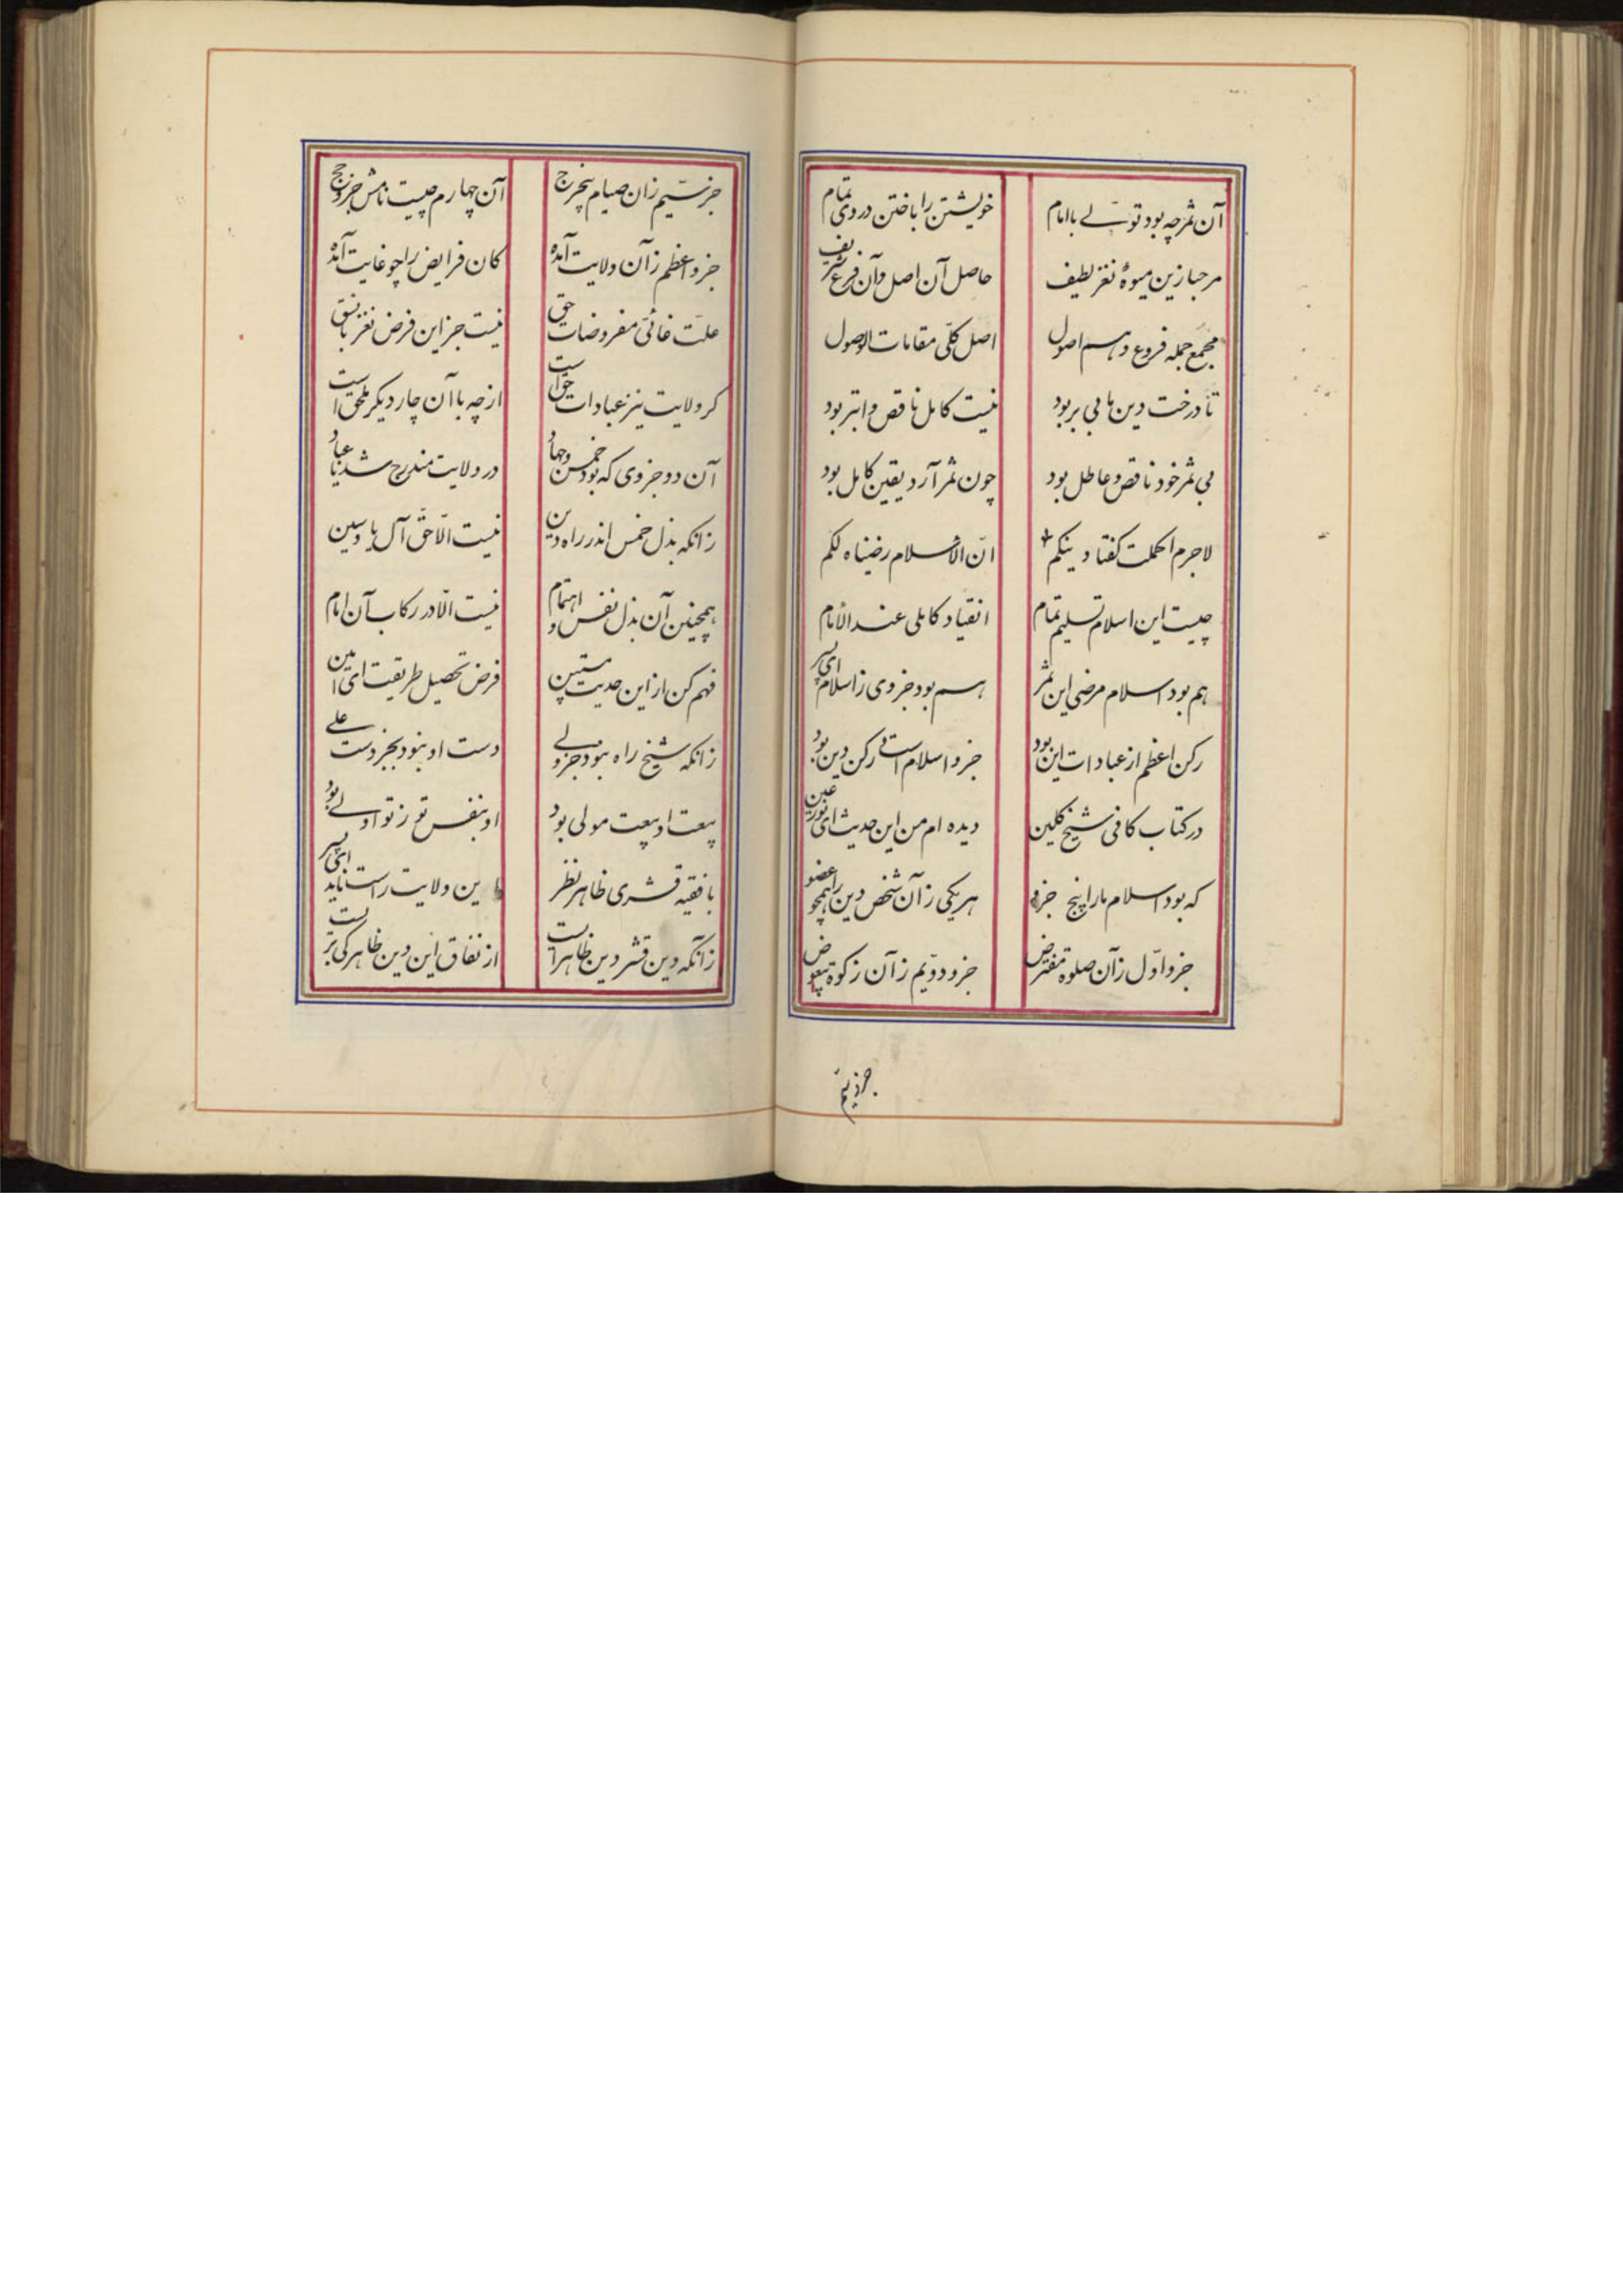 آن ثمر چه بود تولّے با امام خویشتن را باختن در وی تمام
مرحبا زین میوهٔ نغز لطیف حاصل آن اصل و آن فرع شریف
مجمع جمله فروع و هم اصول اصل کلّی مقامات الوصول
تا درخت دین ما بی بر بود نیست کامل ناقص و ابتر بود
بی ثمر خود ناقص و عاطل بود چون ثمر آرد یقین کامل بود
لاجرم اکملت گفتا دینکم انّ الاسلام رضیناه لکم
چیست این اسلام تسلیم تمام انقیاد کاملی عند الأمام
هم بود اسلام مرضی این ثمر هم بود جزوی ز اسلام ای پسر
رکن اعظم از عبادات این بود جزو اسلام است و رکن دین بود
در کتاب کافی شیخ کلین دیده ام من این حدیث ای نور عین
که بود اسلام ما را پنج جزو هر یکی زآن شخص دین را همچو عضو
جزو اوّل زآن صلوة مفترض جزو دویّم زآن زکوة
جز سیّم زان صیام آن چهارم چیست نامش جزو حج
جزو اعظم زآن ولایت آمده کان فرایض را چو غایت آمده
علّت غائیّ مفروضات حق نیست جز این فرض نغز با نسق
کر ولایت نیز عبادات حق است از چه با آن چار دیکر ملحق است
آن دو جزوی که بود خمس و جهاد در ولایت مندرج شد یا عباد
زانکه بذل خمس اندر راه دین نیست الّا حقّ آل یا و سین
همچنین آن بذل نفس و اهتمام نیست الّا در رکاب آن امام
فهم کن از این حدیث مستبین فرض تحصیل طریقت ای امین
زانکه شیخ راه نبود جز ولے دست او نبود بجز دست علے
بیعت او بیعت مولی بود او بنفس تو ز تو اولے بود
با فقیه قشری ظاهر نظر این ولایت راست ناید ای پسر
زآنکه دین قشر دین ظاهر است از نفاق این دین ظاهر کی تر است
جز سیم